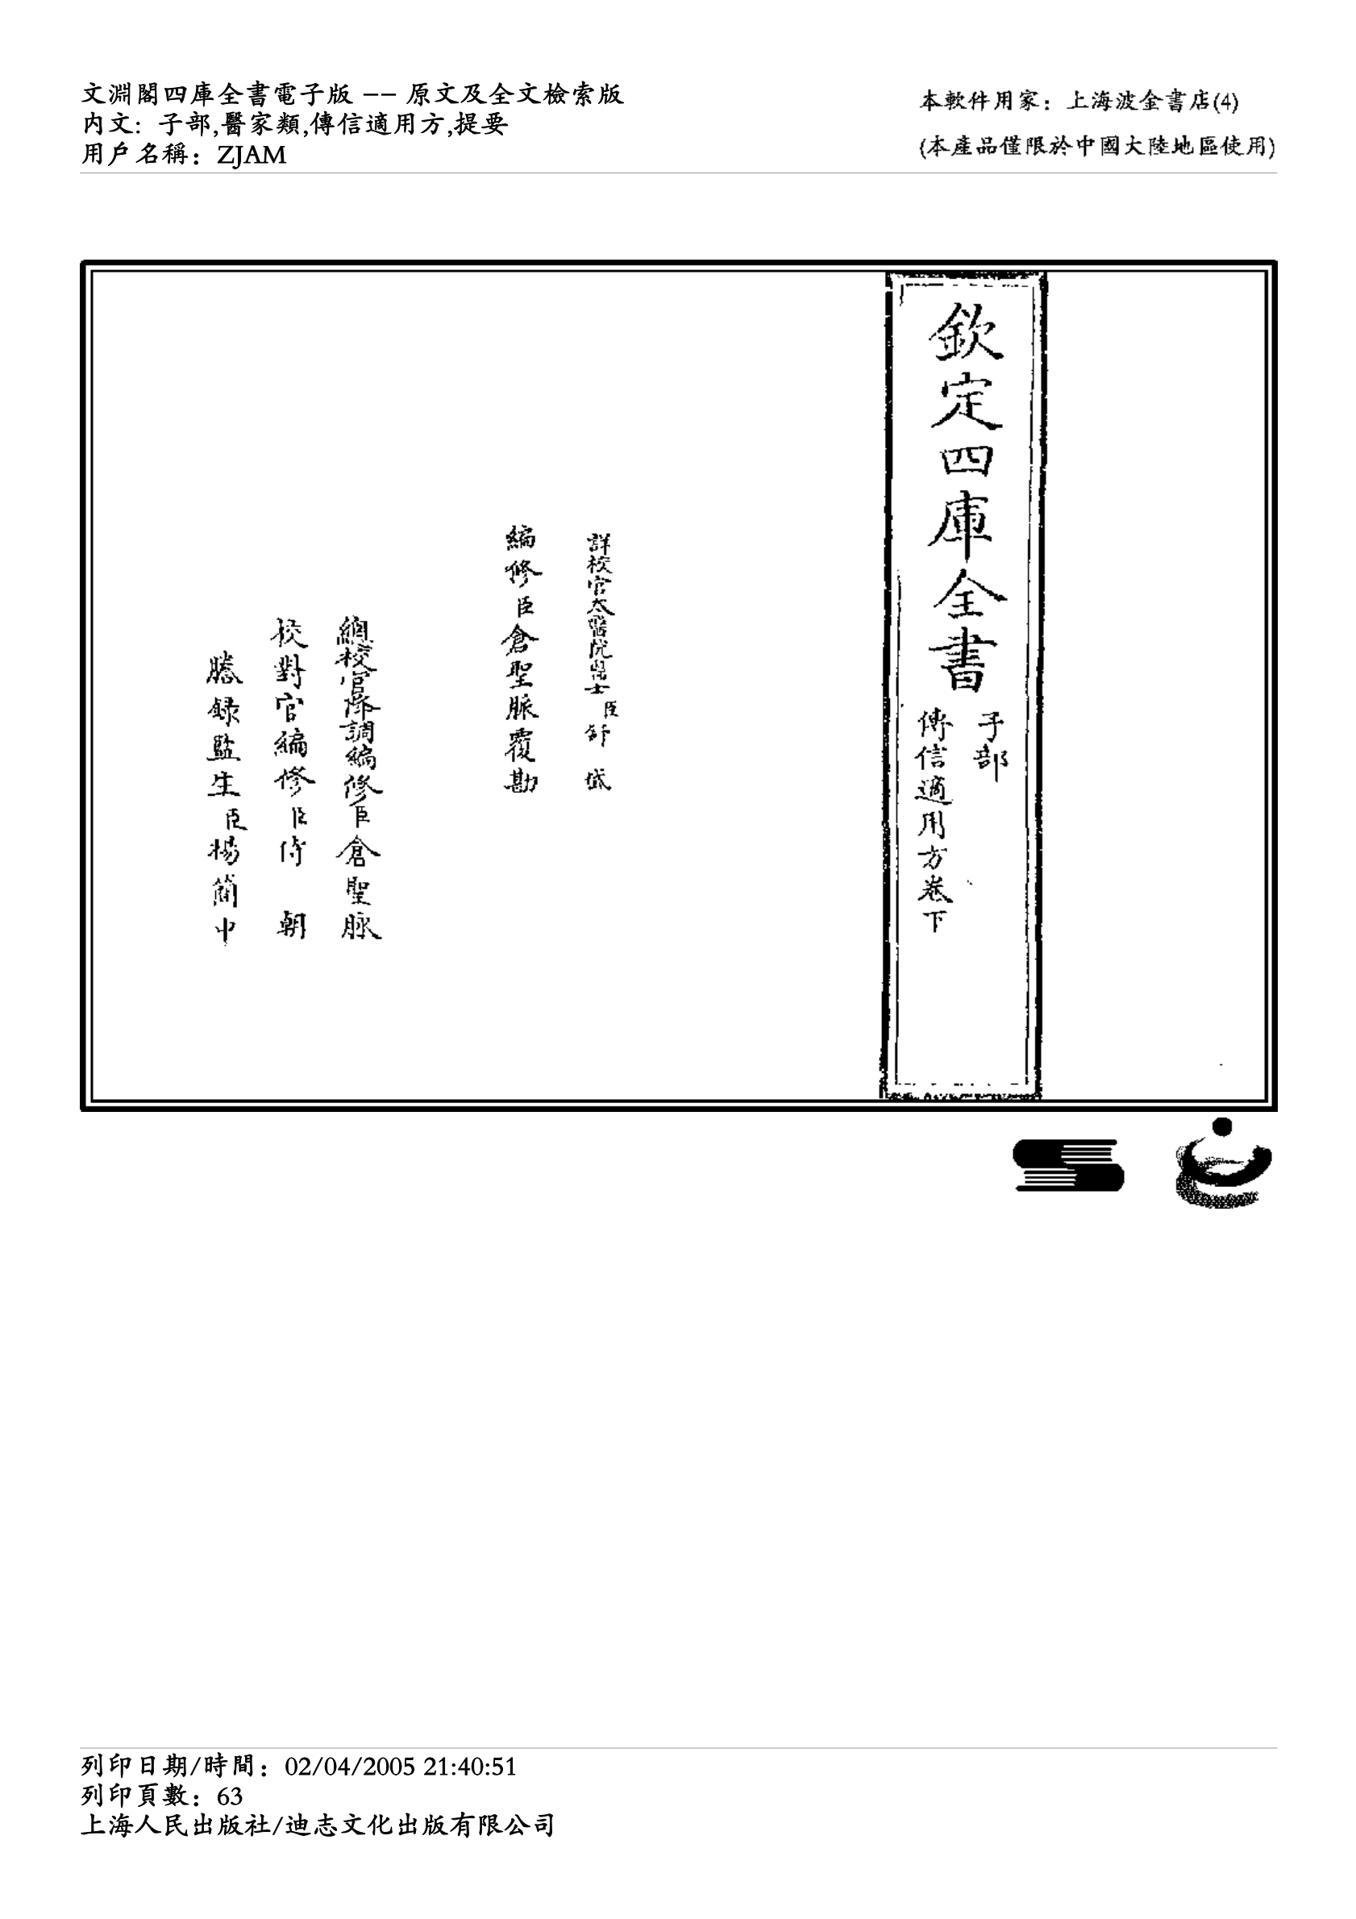 文淵閣四庫全書電子版 -- 原文及全文檢索版
内文: 子部,醫家類,傳信適用方,提要
用戶名稱: ZJAM
本軟件用家: 上海波金書店(4)
(本產品僅限於中國大陸地區使用)
欽定四庫全書
子部
傳信適用方卷下
詳校官太醫院醫士臣舒岱
編修臣倉聖脈覆勘
總校官降調編修臣倉聖脈
校對官編修臣侍朝
謄録監生臣楊簡中
列印日期/時間: 02/04/2005 21:40:51
列印頁數: 63
上海人民出版社/迪志文化出版有限公司